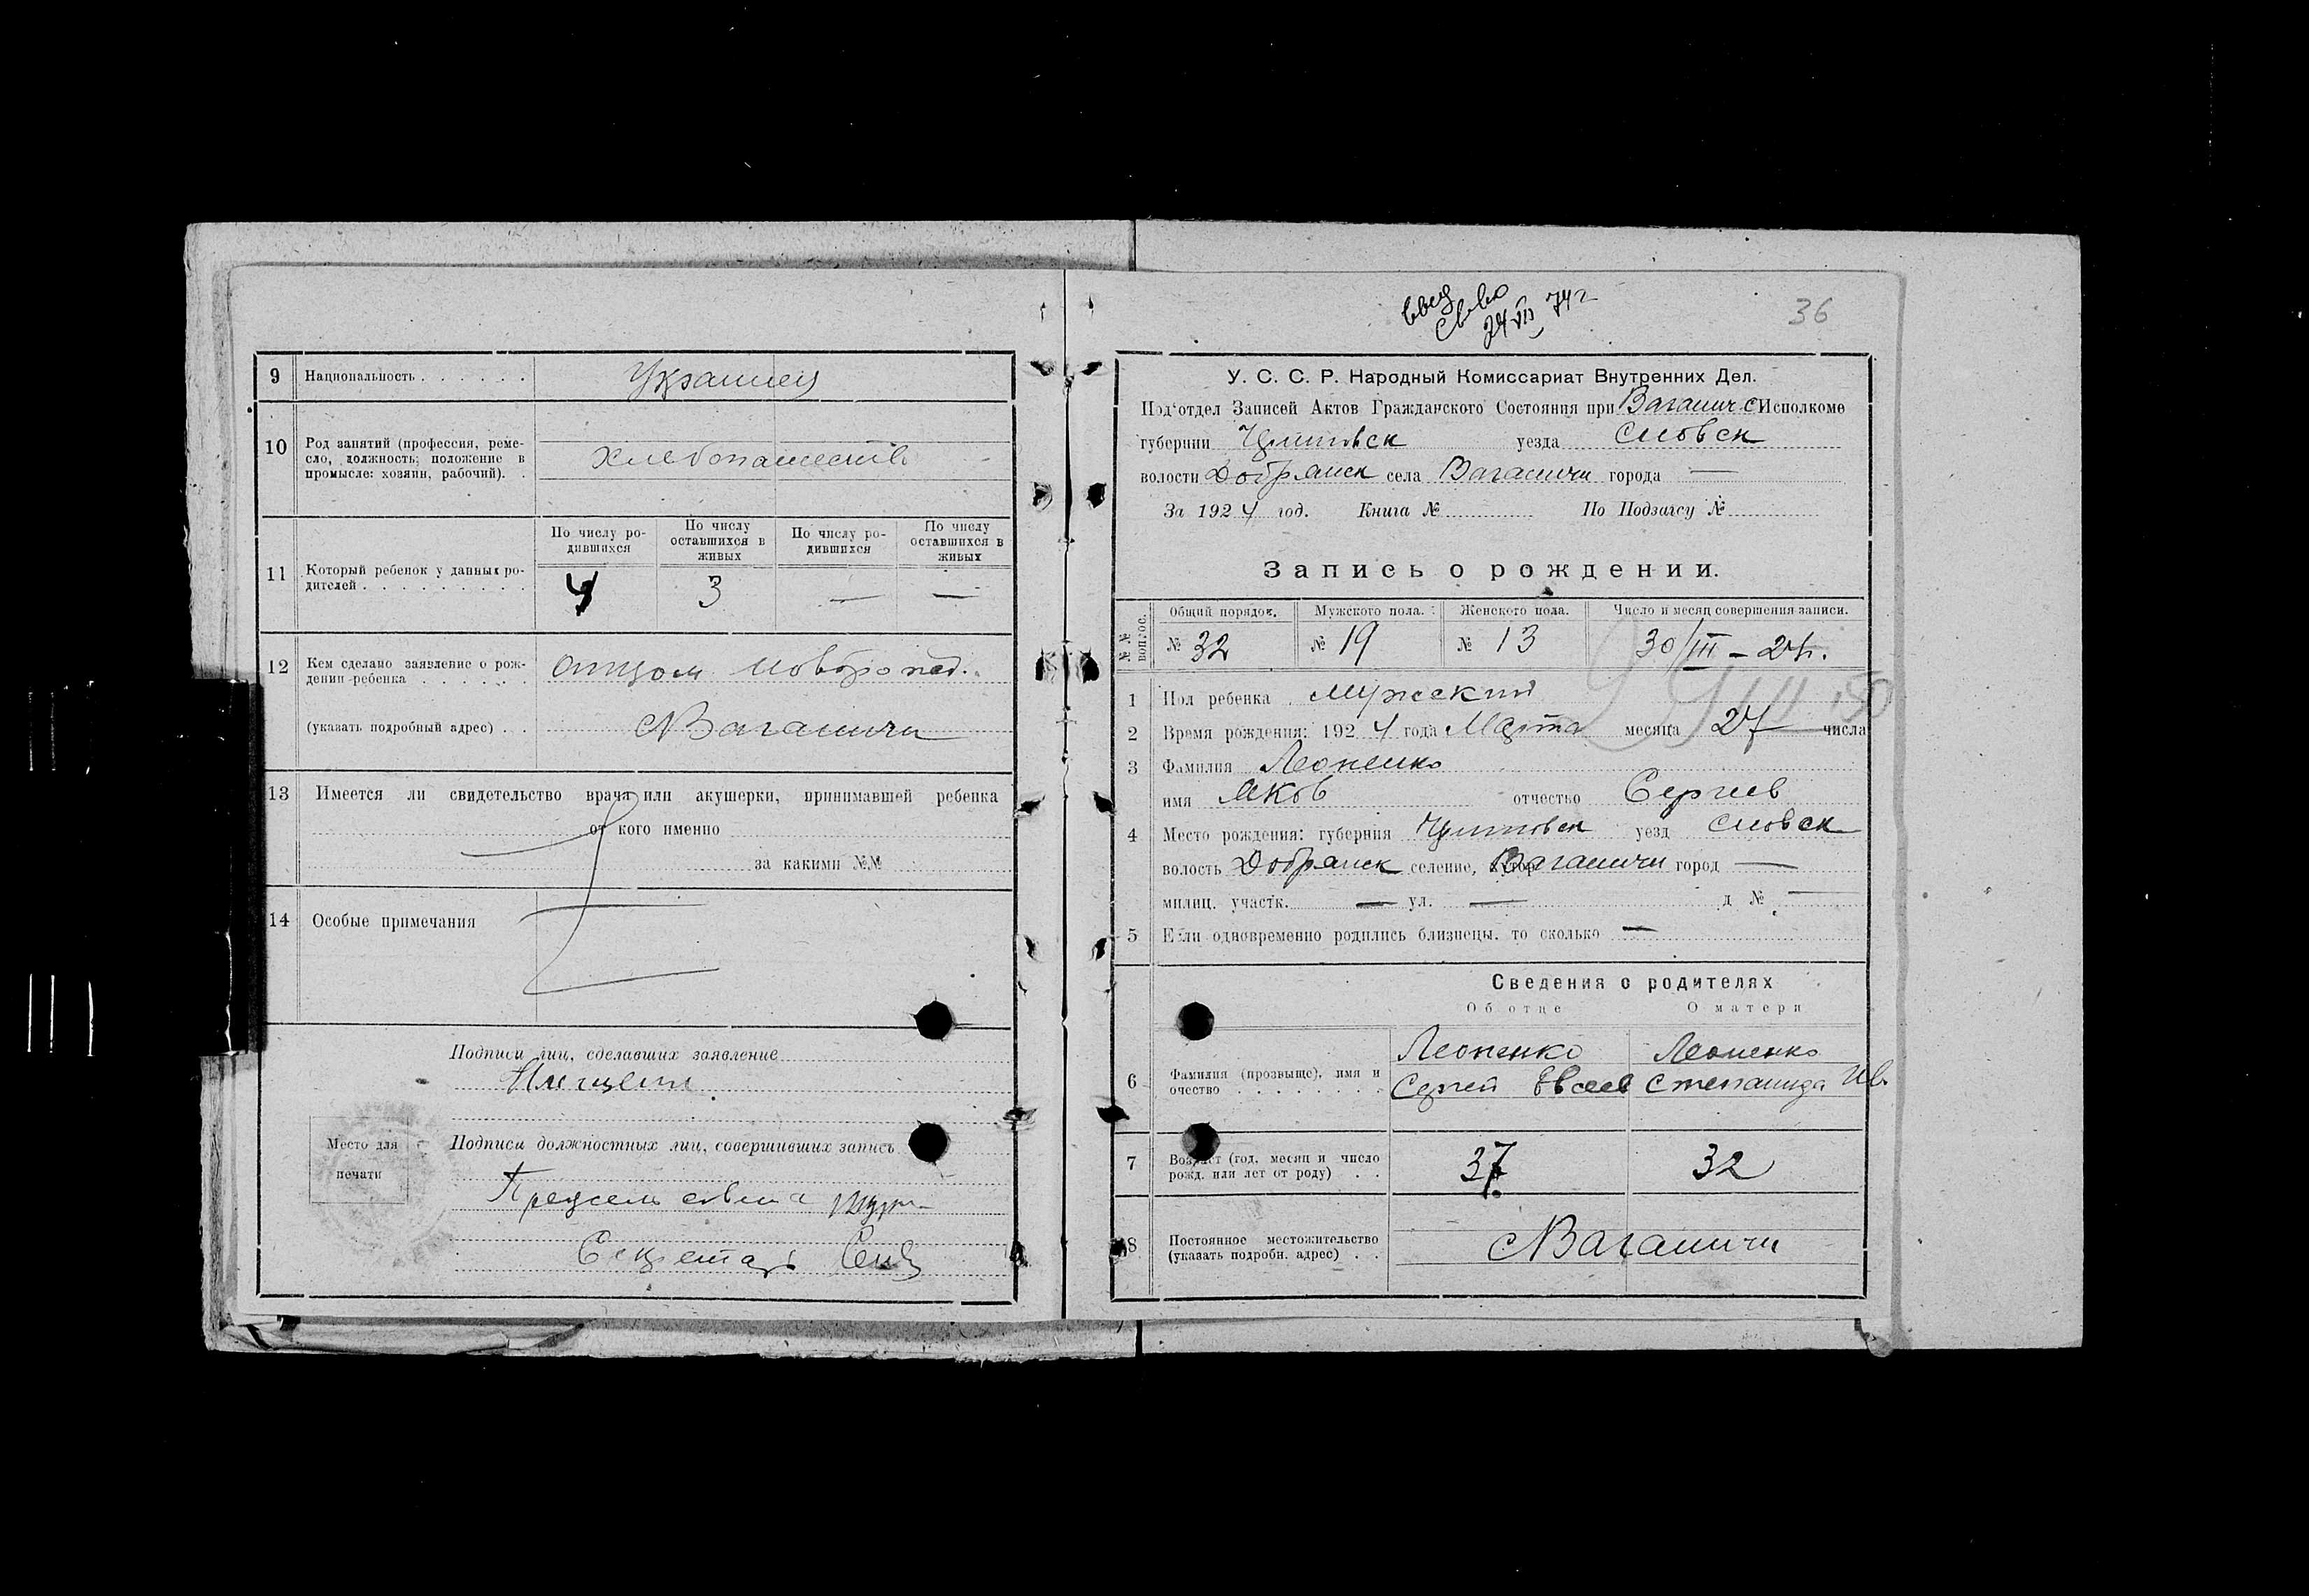 9 Национальность . . . . . . Украинец
10 Род занятий (профессия, реме-
сло, должность; положение в
промысле: хозяин, рабочий). .
Хлебопашеств
11 Который ребенок у данных ро-
дителей . . . . . . . . .
По числу ро-
дившихся
По числу
оставшихся в
живых
По числу ро-
дившихся
По числу
оставшихся в
живых
4 3 — —
12 Кем сделано заявление о рож-
дении ребенка . . . . . .
отцом
(указать подробный адрес) . . с Ваганичи
13 Имеется ли свидетельство врача или акушерки, принимавшей ребенка
от кого именно
за какими №№
14 Особые примечания
Подписи лиц, сделавших заявление
Место для
печати
Подписи должностных лиц, совершивших запись
Секретарь
введ
24 VII 74 г
36
У. С. С. Р. Народный Комиссариат Внутренних Дел.
Под'отдел Записей Актов Гражданского Состояния при Ваганич. С Исполкоме
губернии уезда Сновск
волости Добрянск села Ваганичи города —
За 1924 год. Книга № По Подзагсу №
Запись о рождении.
№ № вопрос.
Общий порядок. Мужского пола. Женского пола. Число и месяц совершения записи.
№ 32 № 19 № 13 30/III – 24 г.
1 Пол ребенка мужский
2 Время рождения: 1924 года Марта месяца 27 числа
3 Фамилия Леоненко
имя Яков отчество Сергеев
4 Место рождения: губерния уезд Сновск
волость Добрянск селение, хутор Ваганичи город —
милиц. участк. — ул. — д № —
5 Если одновременно родились близнецы. то сколько —
Сведения о родителях
Об отце О матери
6 Фамилия (прозвище), имя и
очество . . . . . . . .
Леоненко Леоненко
Сергей Евсеев Степанида Ив.
7 Возраст (год, месяц и число
рожд. или лет от роду) . .
37 32
8 Постоянное местожительство
(указать подробн. адрес) . .
с Ваганичи